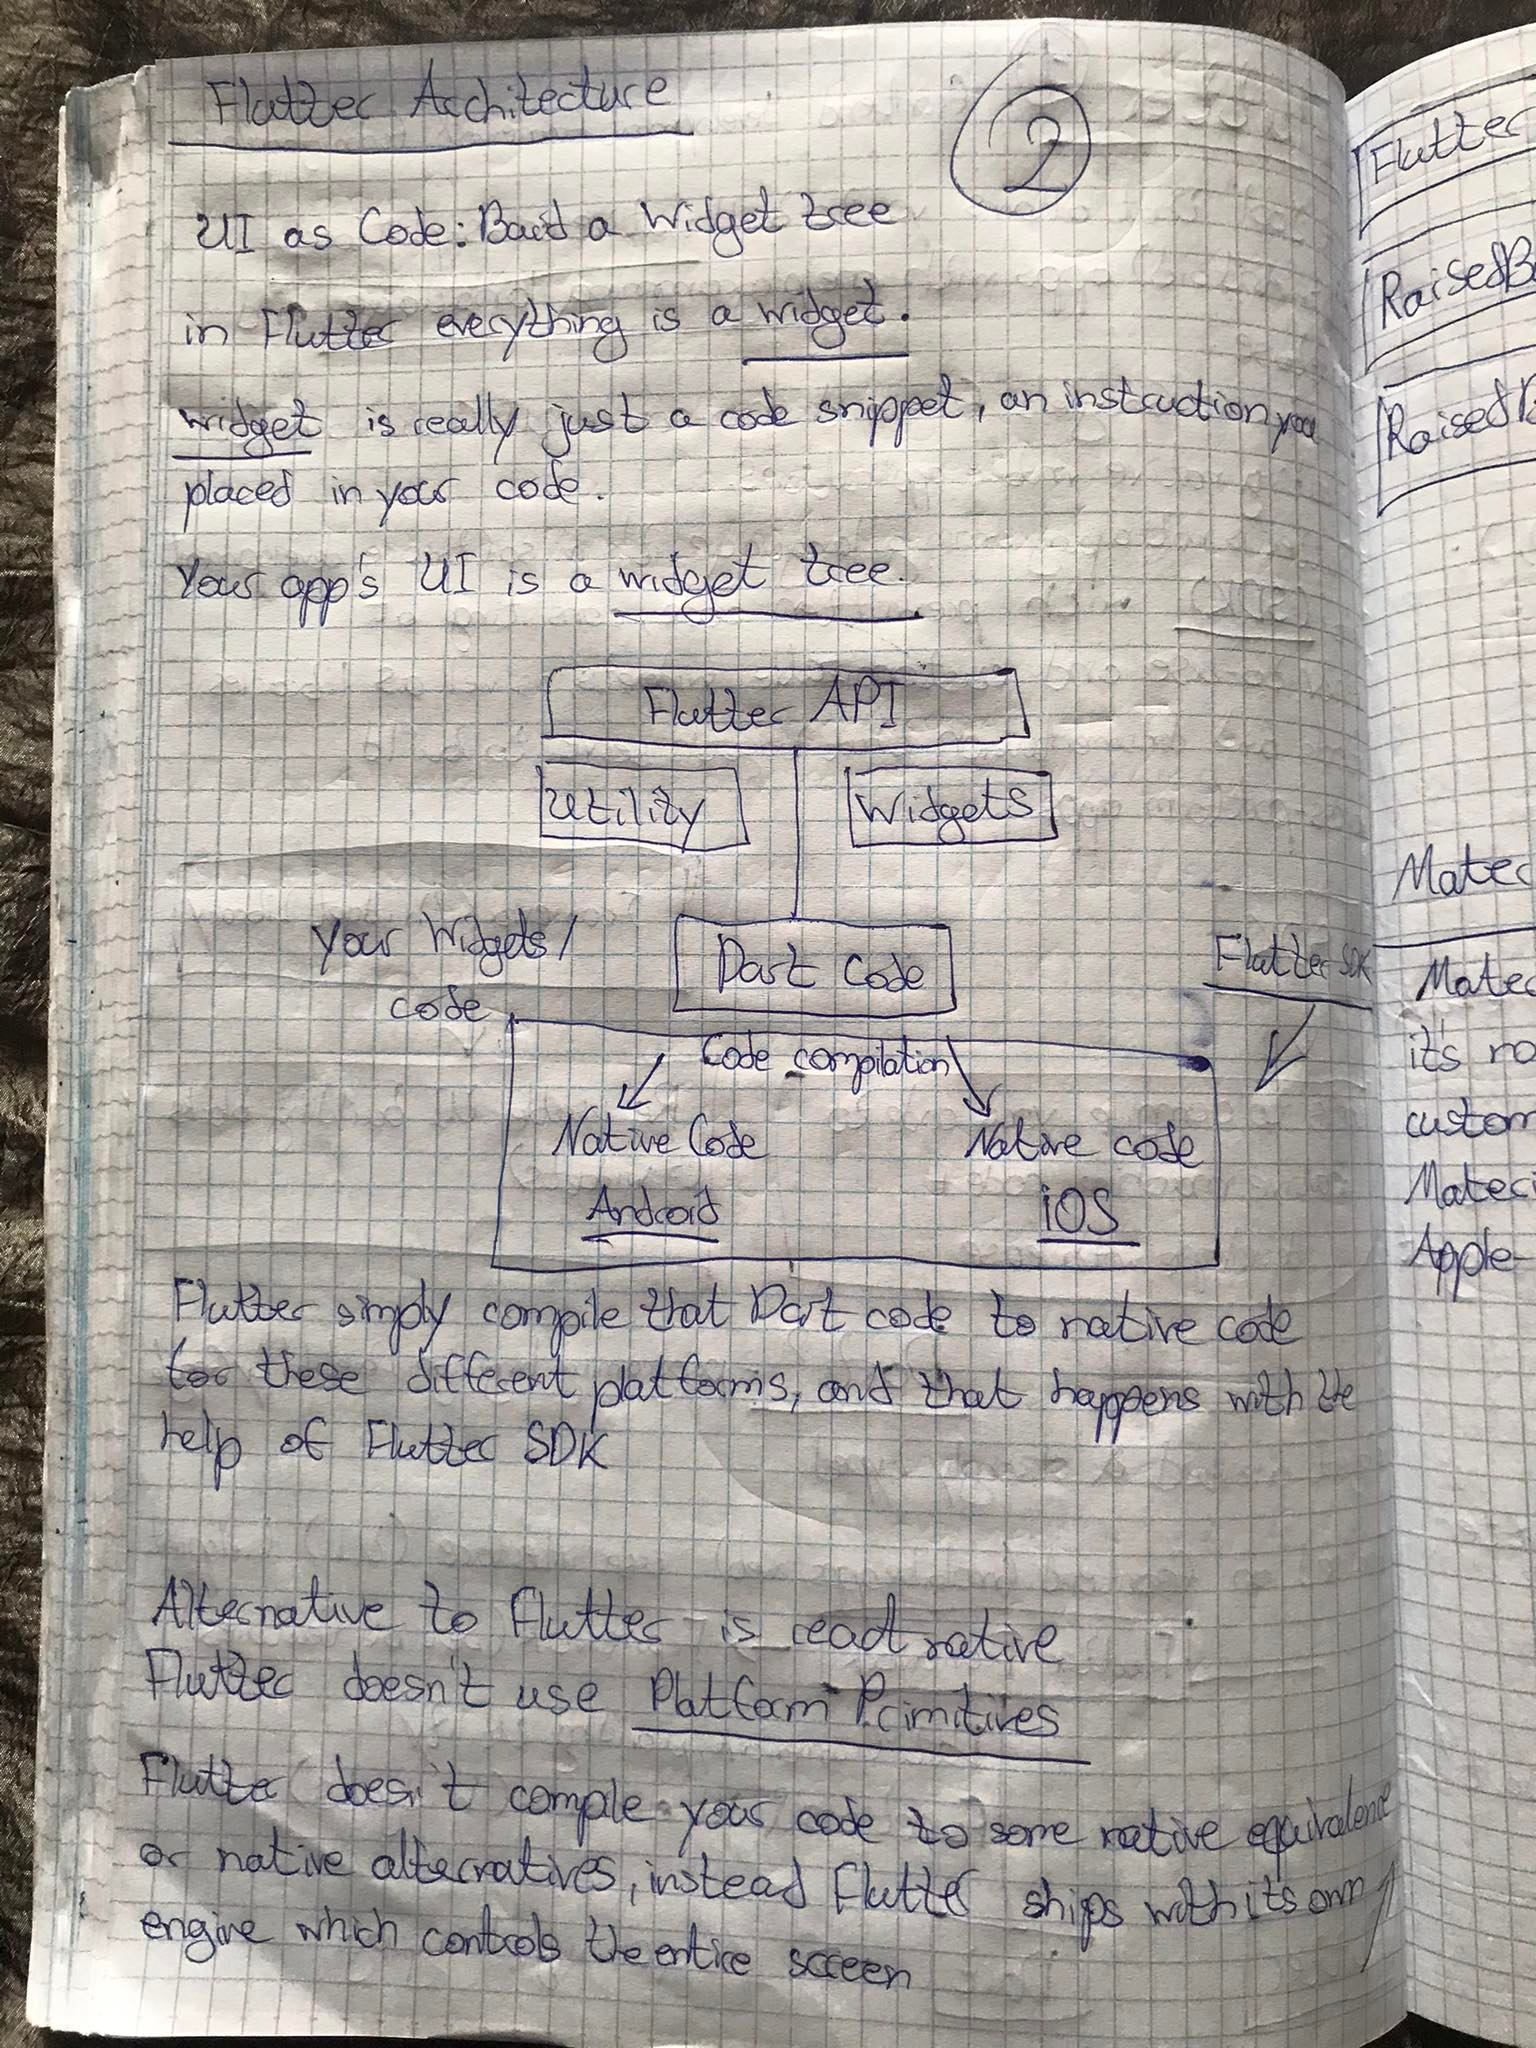 Flutter Architecture
2
UI as Code: Build a Widget tree
in Flutter everything is a widget.
widget is really just a code snippet, an instruction you
placed in your code.
Your app's UI is a widget tree.
Flutter API
Utility
Widgets
Your Widgets/
code
Dart Code
Flutter SDK
Code compilation
Native Code
Native code
Android
iOS
Flutter simply compile that Dart code to native code
for these different platforms, and that happens with the
help of Flutter SDK
Alternative to Flutter is react native
Flutter doesn't use Platform Primitives
Flutter doesn't compile your code to some native equivalence
or native alternatives, instead Flutter ships with its own
engine which controls the entire screen
Flutter
RaisedB
RaisedB
Mater
Mater
it's no
custom
Materi
Apple-